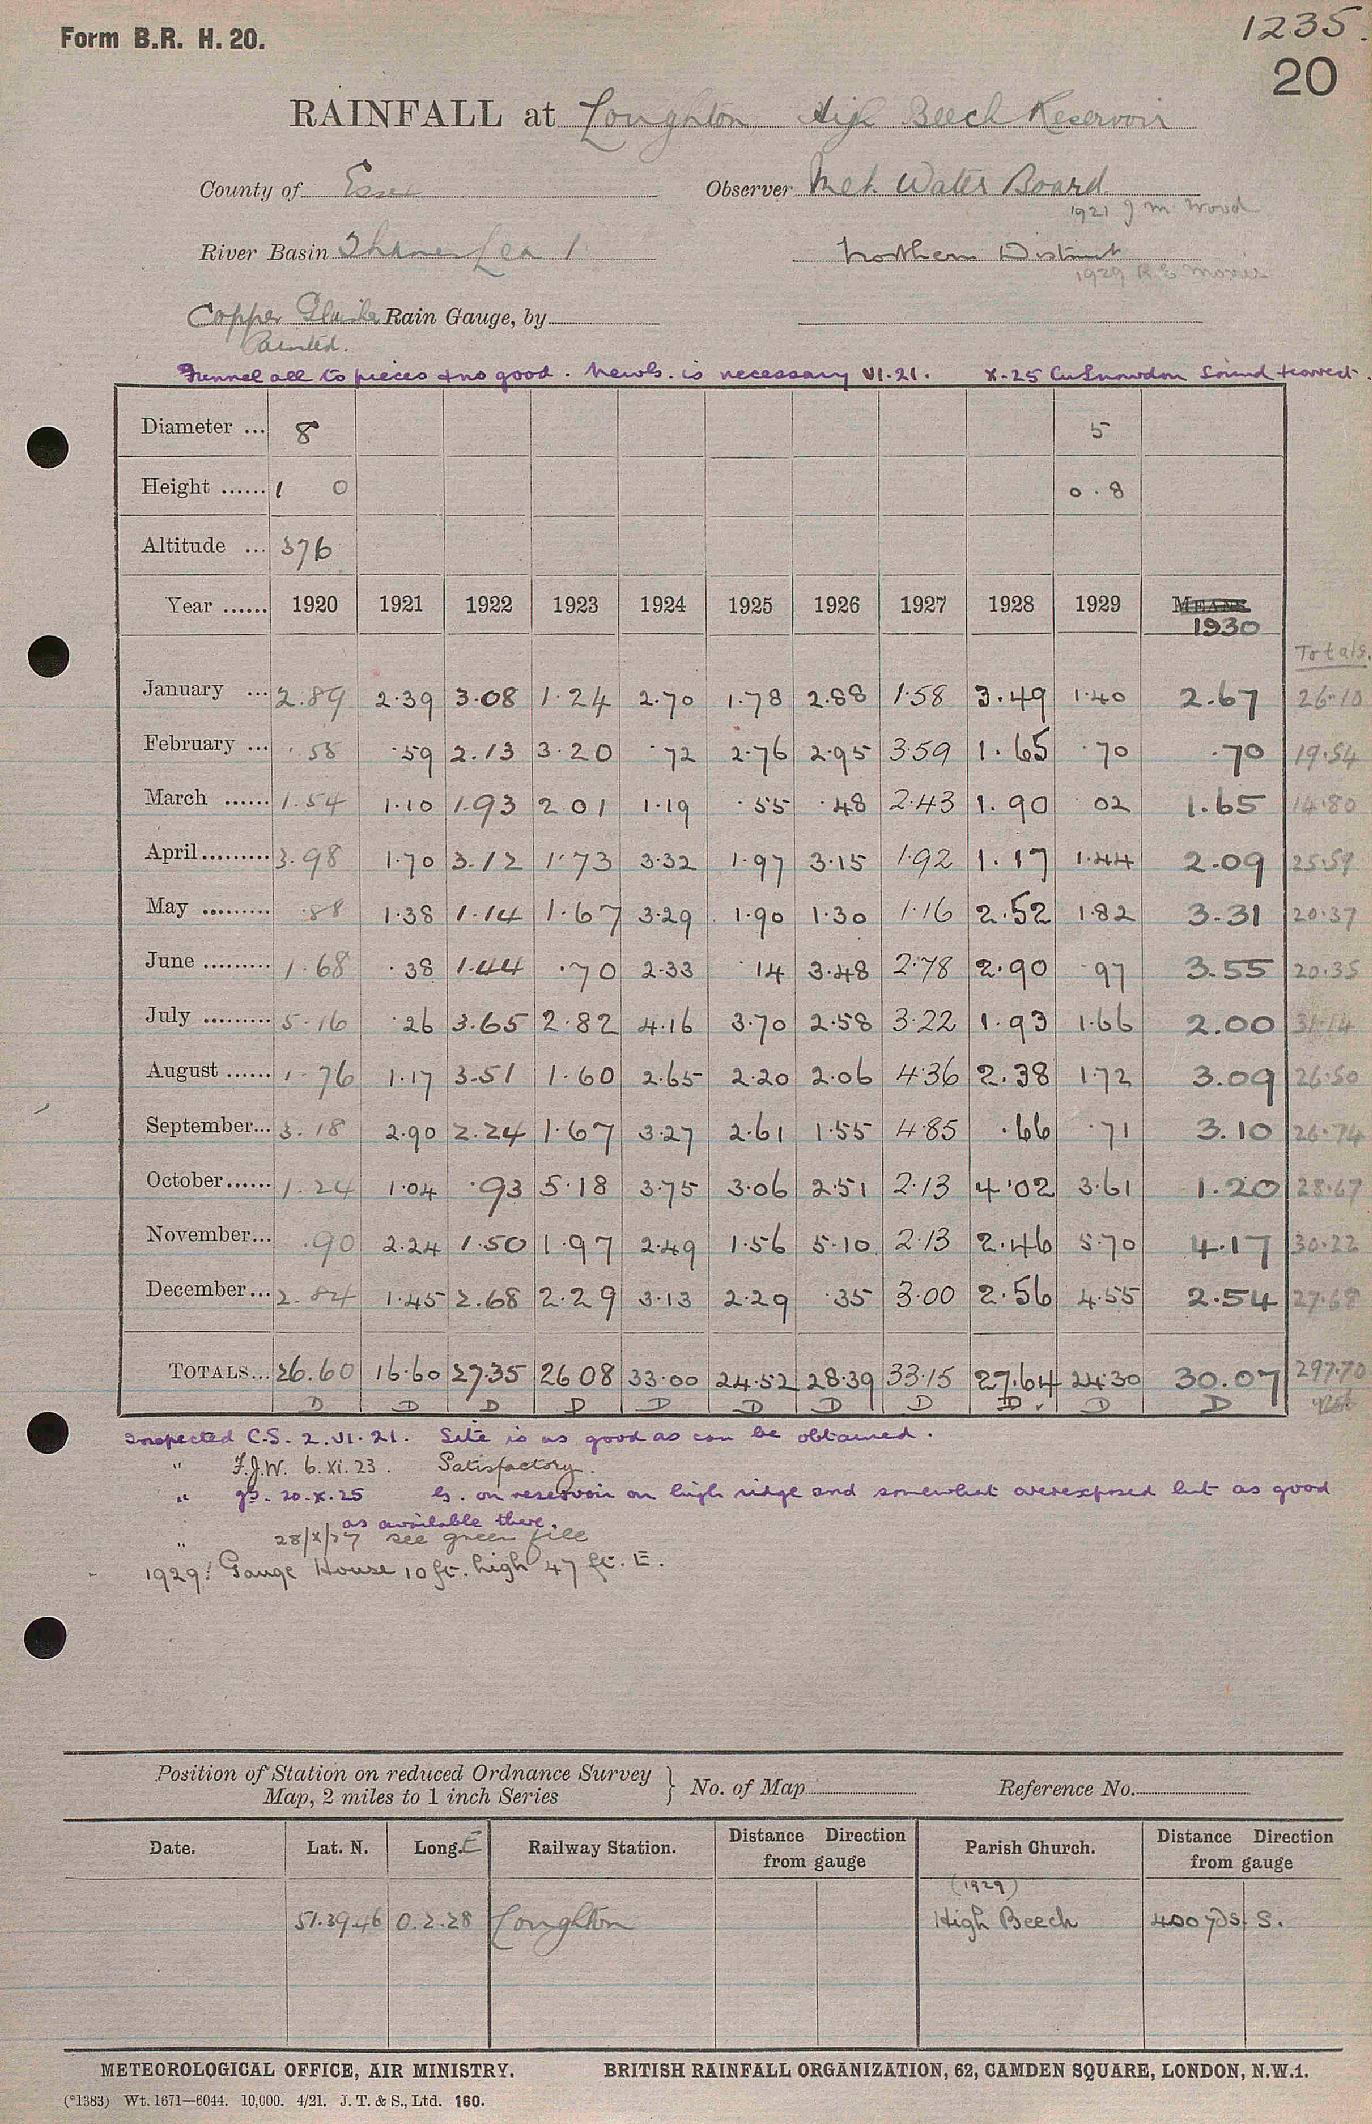 Form B.R. H. 20.
1235.
20
RAINFALL at Loughton High Beech Reservoir
County of Essex Observer Met. Water Board
1921 J M Wood
River Basin Thames Lea 1 Northern District
1929 R.E. Morris
Copper Rain Gauge, by
Painted.
Funnel all to pieces & no good. New G. is necessary VI.21. X-25 Cu Snowdon Sound & correct.
Diameter ... 8 5
Height ...... 1 0 0.8
Altitude ... 376
Year ...... 1920 1921 1922 1923 1924 1925 1926 1927 1928 1929 MEANS 1930
Totals.
January ... 2.89 2.39 3.08 1.24 2.70 1.78 2.88 1.58 3.49 1.40 2.67 26.10
February ... .58 .59 2.13 3.20 .72 2.76 2.95 3.59 1.65 .70 .70 19.54
March ...... 1.54 1.10 1.93 2.01 1.19 .55 .48 2.43 1.90 02 1.65 14.80
April......... 3.98 1.70 3.12 1.73 3.32 1.97 3.15 1.92 1.17 1.44 2.09 25.59
May ......... .88 1.38 1.14 1.67 3.29 1.90 1.30 1.16 2.52 1.82 3.31 20.37
June ......... 1.68 .38 1.44 .70 2.33 .14 3.48 2.78 2.90 .97 3.55 20.35
July ......... 5.16 .26 3.65 2.82 4.16 3.70 2.58 3.22 1.93 1.66 2.00 31.14
August ...... 1.76 1.17 3.51 1.60 2.65 2.20 2.06 4.36 2.38 1.72 3.09 26.50
September... 3.18 2.90 2.24 1.67 3.27 2.61 1.55 4.85 .66 .71 3.10 26.74
October...... 1.24 1.04 .93 5.18 3.75 3.06 2.51 2.13 4.02 3.61 1.20 28.67
November... .90 2.24 1.50 1.97 2.49 1.56 5.10 2.13 2.46 5.70 4.17 30.22
December... 2.84 1.45 2.68 2.29 3.13 2.29 .35 3.00 2.56 4.55 2.54 27.68
TOTALS... 26.60 16.60 27.35 26 08 33.00 24.52 28.39 33.15 27.64 24.30 30.07 297.70
D D D D D D D D D. D D
Inspected C.S. 2.VI.21. Site is as good as can be obtained.
" F.J.W. 6.XI.23. Satisfactory.
" 20.X.25 G. on reservoir on high ridge and somewhat overexposed but as good
as available there.
" 28/X/27 see green file
1929: Gauge House 10 ft. high 47 ft. E.
Position of Station on reduced Ordnance Survey
Map, 2 miles to 1 inch Series } No. of Map Reference No.
Date. Lat. N. Long. E Railway Station. Distance Direction from gauge Parish Church. Distance Direction from gauge
(1929)
51.39.46 0.2.28 Loughton High Beech 400 yds S.
METEOROLOGICAL OFFICE, AIR MINISTRY. BRITISH RAINFALL ORGANIZATION, 62, CAMDEN SQUARE, LONDON, N.W.1.
(*1383) Wt. 1671—6044. 10,000. 4/21. J. T. & S., Ltd. 160.